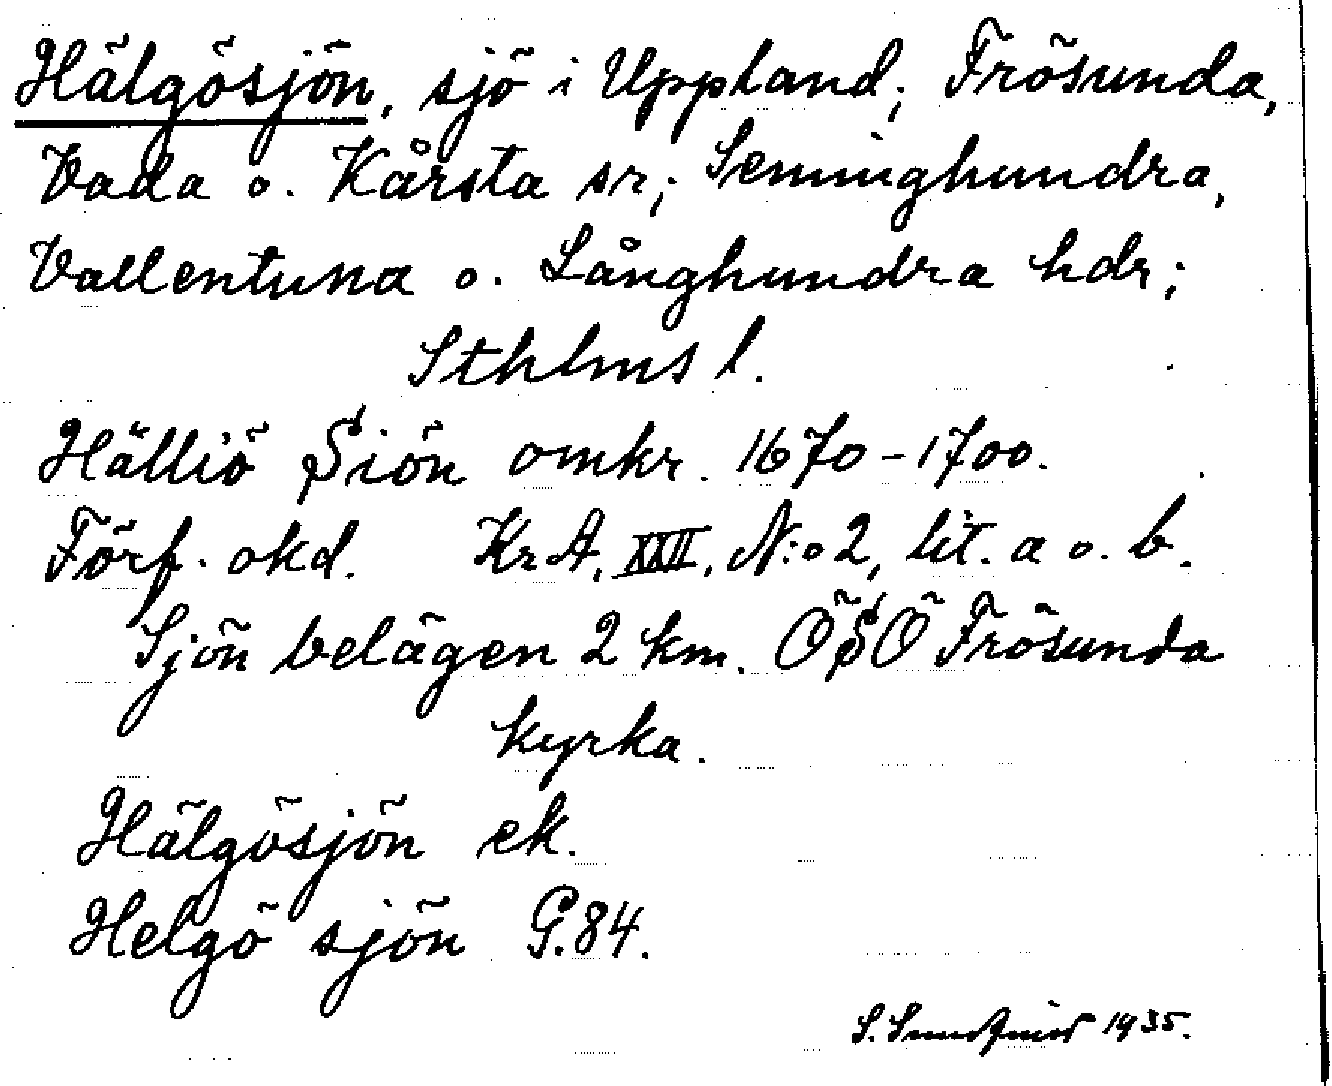 Hälgösjön, sjö i Uppland; Frösunda,
Vada o. Kårsta sr; Seminghundra,
Vallentuna o. Långhundra hdr;
Sthlms l.
Hälliö Siön omkr. 1670-1700.
Förf. okd. KrA, XXII, N:o 2, lit. a o. b.
Sjön belägen 2 km. ÖSÖ Frösunda
kyrka.
Hälgösjön ek.
Helgö sjön G.84.
S. Sundquist 1935.